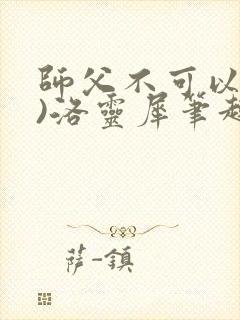 師父不可以
)-洛靈犀筆趣
薩-鎮